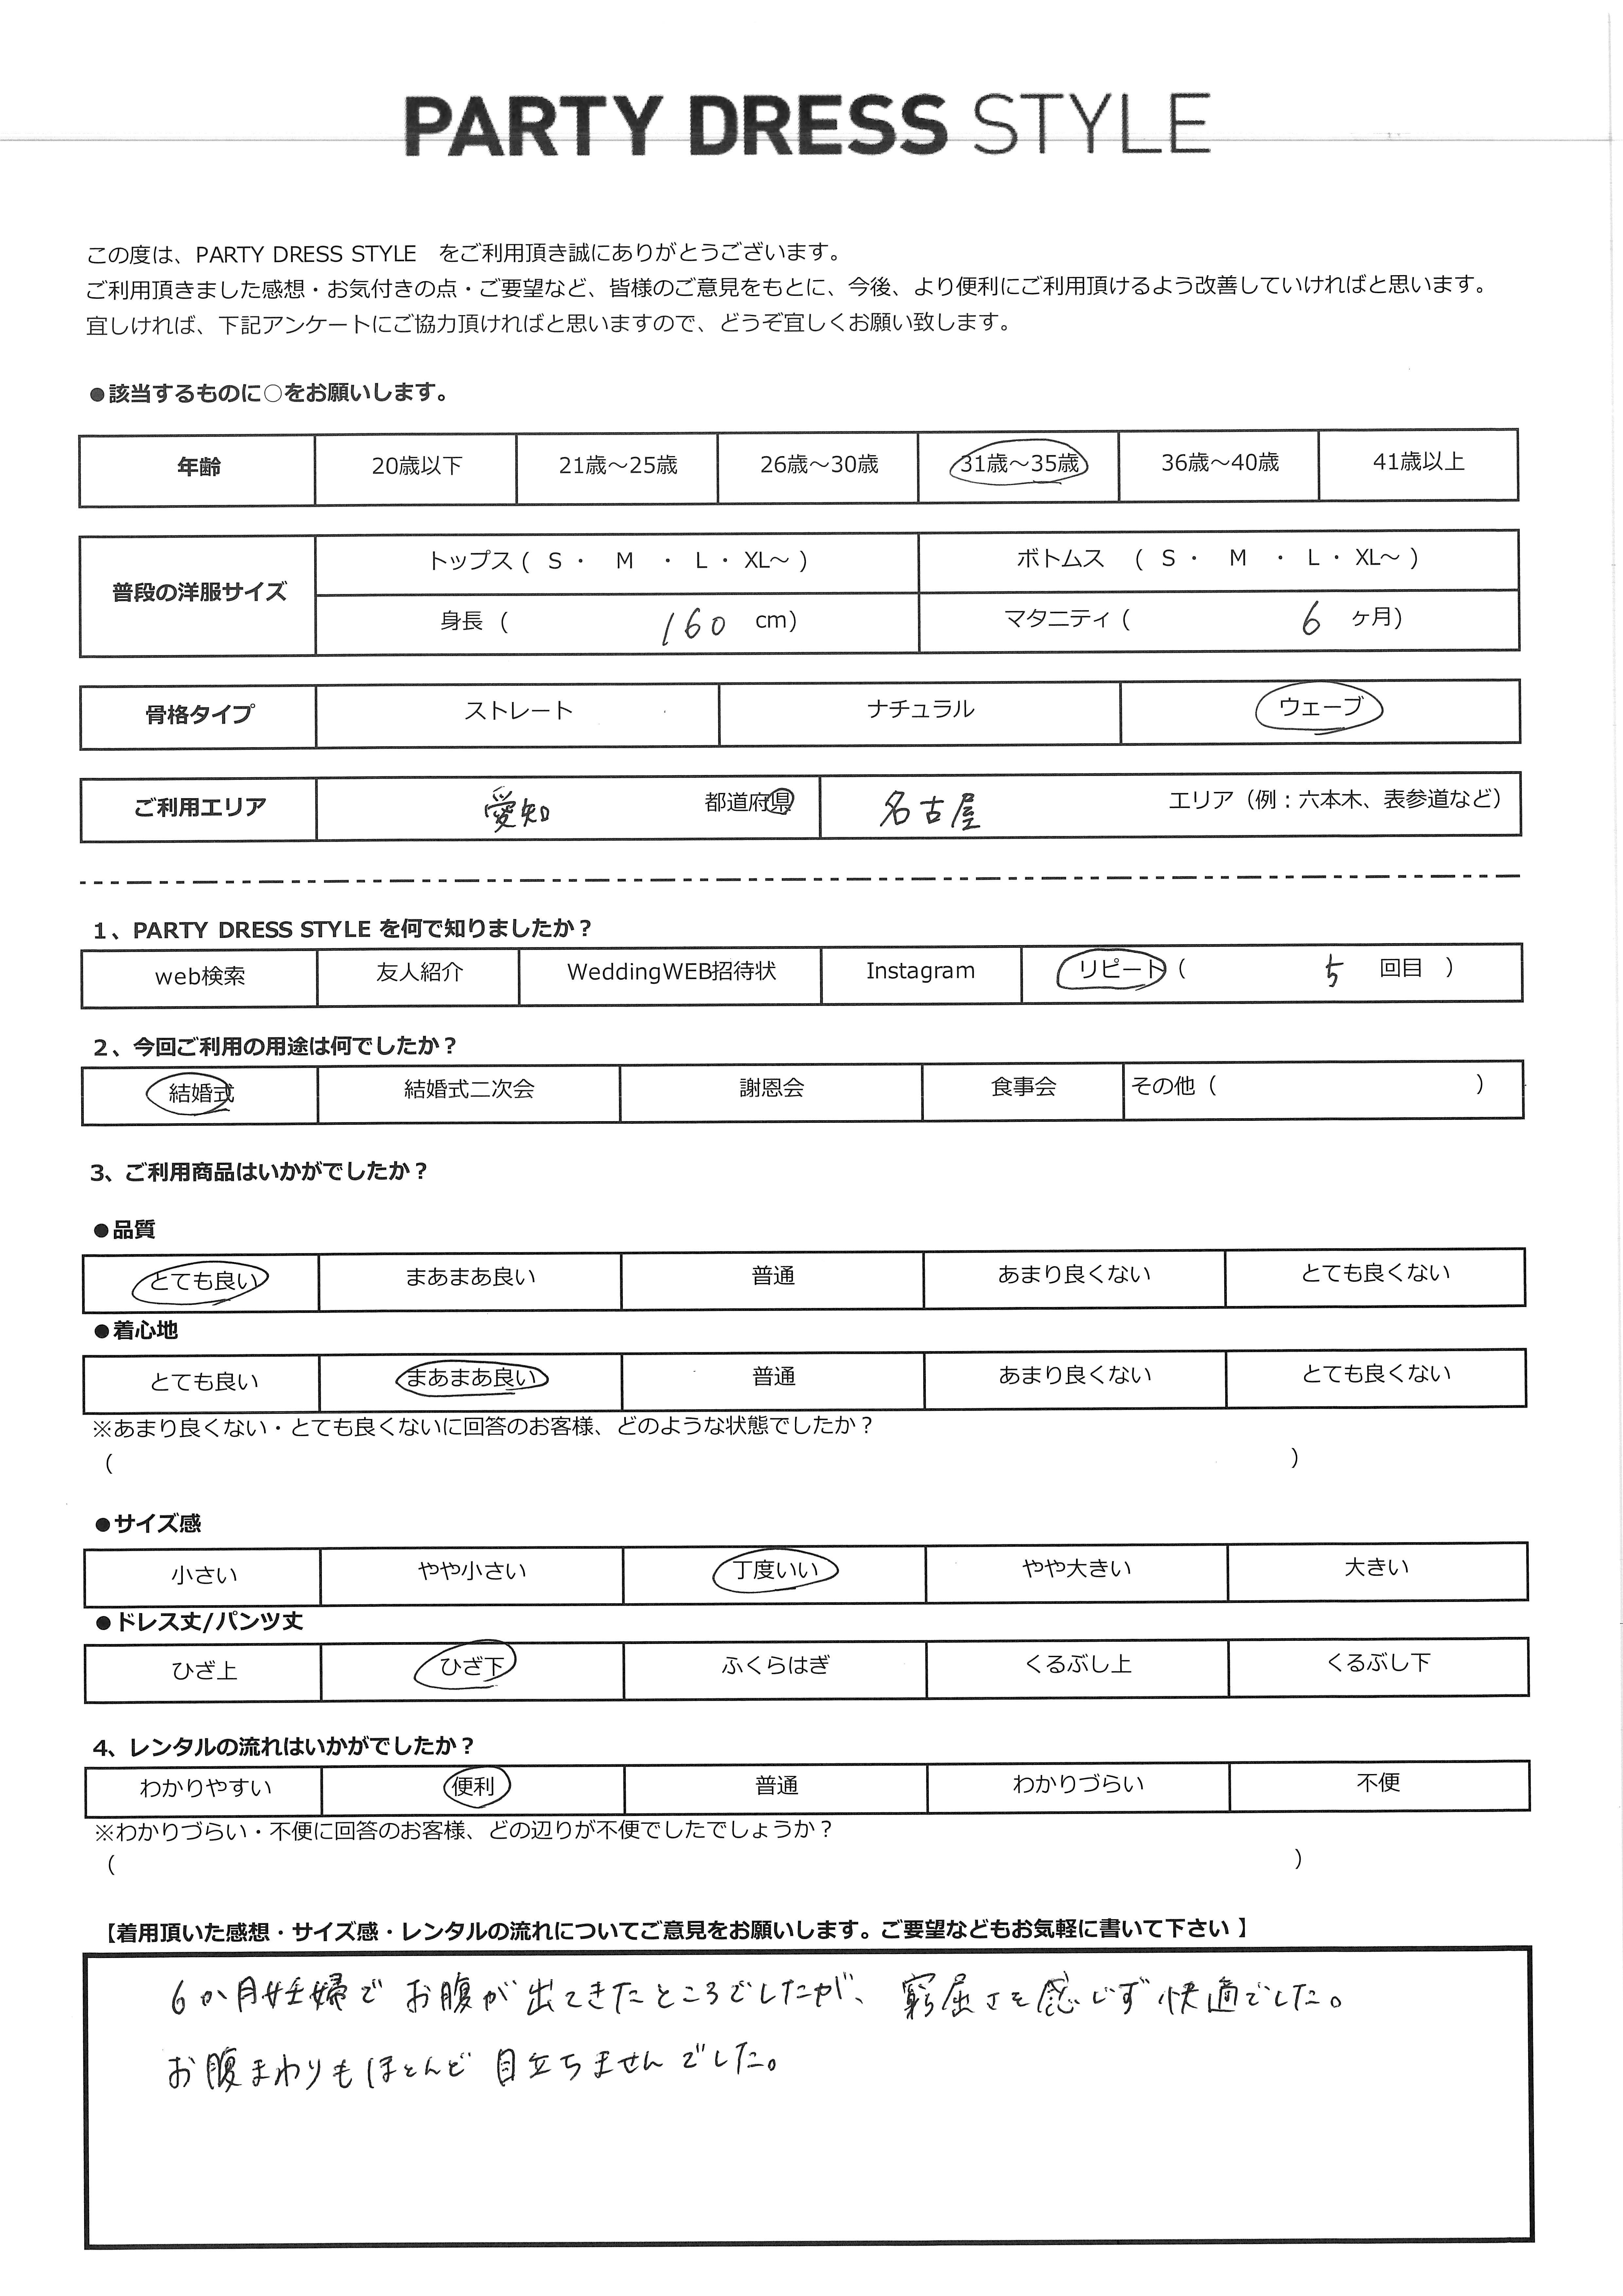 PARTY DRESS STYLE
この度は、PARTY DRESS STYLE をご利用頂き誠にありがとうございます。
ご利用頂きました感想・お気付きの点・ご要望など、皆様のご意見をもとに、今後、より便利にご利用頂けるよう改善していければと思います。
宜しければ、下記アンケートにご協力頂ければと思いますので、どうぞ宜しくお願い致します。
●該当するものに○をお願いします。
年齢 20歳以下 21歳～25歳 26歳～30歳 31歳～35歳 36歳～40歳 41歳以上
普段の洋服サイズ
トップス ( S ・ M ・ L ・ XL～ ) ボトムス ( S ・ M ・ L ・ XL～ )
身長 ( 160 cm) マタニティ ( 6 ヶ月)
骨格タイプ ストレート ナチュラル ウェーブ
ご利用エリア 愛知 都道府県 名古屋 エリア（例：六本木、表参道など）
1、PARTY DRESS STYLE を何で知りましたか？
web検索 友人紹介 WeddingWEB招待状 Instagram リピート ( 5 回目 )
2、今回ご利用の用途は何でしたか？
結婚式 結婚式二次会 謝恩会 食事会 その他 ( )
3、ご利用商品はいかがでしたか？
●品質
とても良い まあまあ良い 普通 あまり良くない とても良くない
●着心地
とても良い まあまあ良い 普通 あまり良くない とても良くない
※あまり良くない・とても良くないに回答のお客様、どのような状態でしたか？
( )
●サイズ感
小さい やや小さい 丁度いい やや大きい 大きい
●ドレス丈/パンツ丈
ひざ上 ひざ下 ふくらはぎ くるぶし上 くるぶし下
4、レンタルの流れはいかがでしたか？
わかりやすい 便利 普通 わかりづらい 不便
※わかりづらい・不便に回答のお客様、どの辺りが不便でしたでしょうか？
( )
【着用頂いた感想・サイズ感・レンタルの流れについてご意見をお願いします。ご要望などもお気軽に書いて下さい 】
6か月妊婦で お腹が 出てきたところでしたが、 窮屈さを感じず快適でした。
お腹まわりもほとんど 目立ちませんでした。